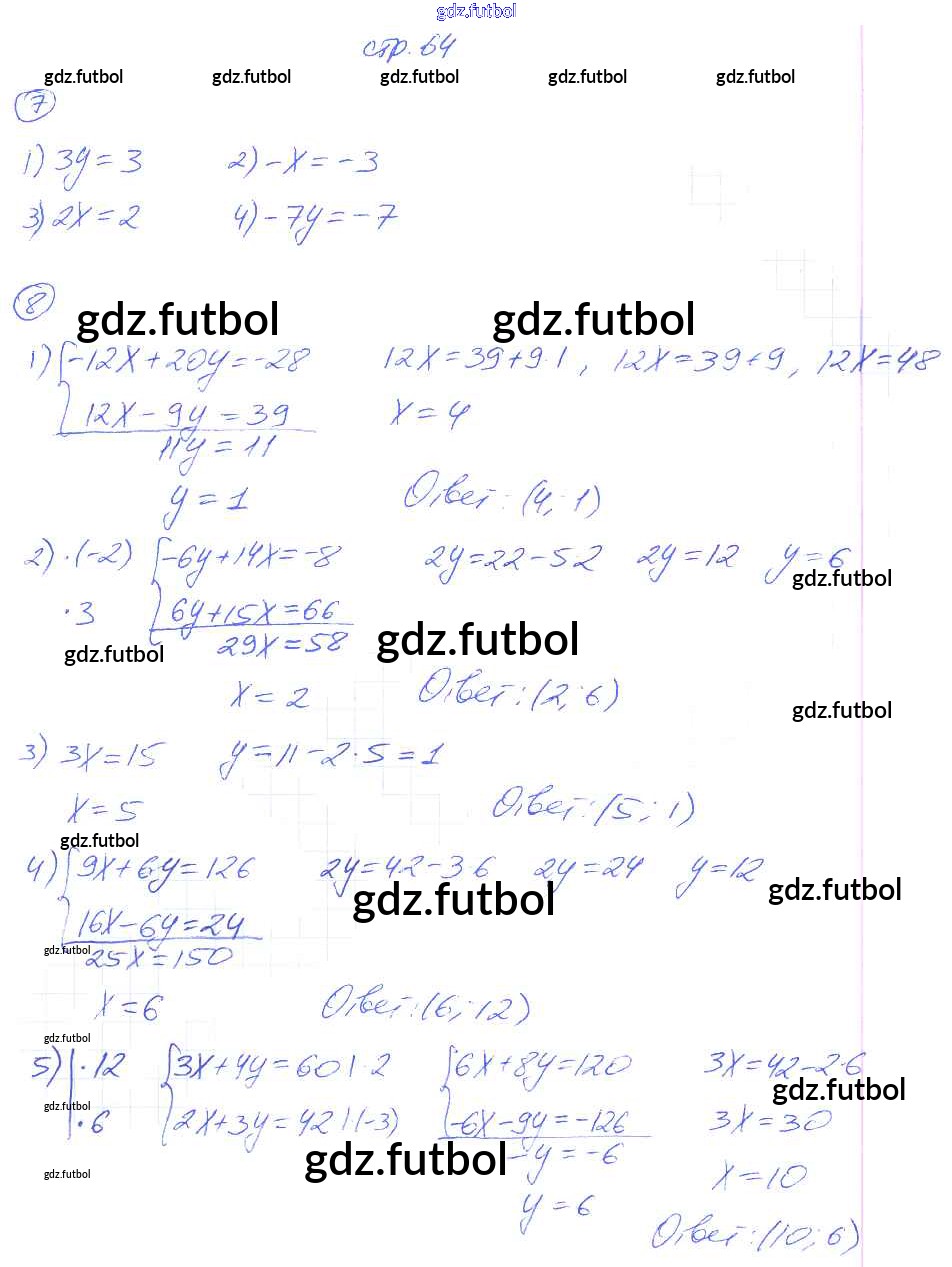 gdz.futbol
стр. 64
gdz.futbol gdz.futbol gdz.futbol gdz.futbol gdz.futbol
7
1) 3y = 3 2) -x = -3
3) 2x = 2 4) -7y = -7
8
gdz.futbol gdz.futbol
1) {-12x + 20y = -28 12x = 39 + 9·1, 12x = 39 + 9, 12x = 48
12x - 9y = 39 x = 4
11y = 11
y = 1 Ответ: (4; 1)
2) ·(-2) {-6y + 14x = -8 2y = 22 - 5·2 2y = 12 y = 6
gdz.futbol
·3 6y + 15x = 66
29x = 58 gdz.futbol
gdz.futbol
x = 2 Ответ: (2; 6)
gdz.futbol
3) 3x = 15 y = 11 - 2·5 = 1
x = 5 Ответ: (5; 1)
gdz.futbol
4) {9x + 6y = 126 2y = 42 - 3·6 2y = 24 y = 12
gdz.futbol gdz.futbol
16x - 6y = 24
gdz.futbol
25x = 150
x = 6 Ответ: (6; 12)
gdz.futbol
5) |·12 {3x + 4y = 60 |·2 {6x + 8y = 120 3x = 42 - 2·6
gdz.futbol
gdz.futbol
|·6 2x + 3y = 42 |·(-3) -6x - 9y = -126 3x = 30
gdz.futbol -y = -6
gdz.futbol
x = 10
y = 6
Ответ: (10; 6)